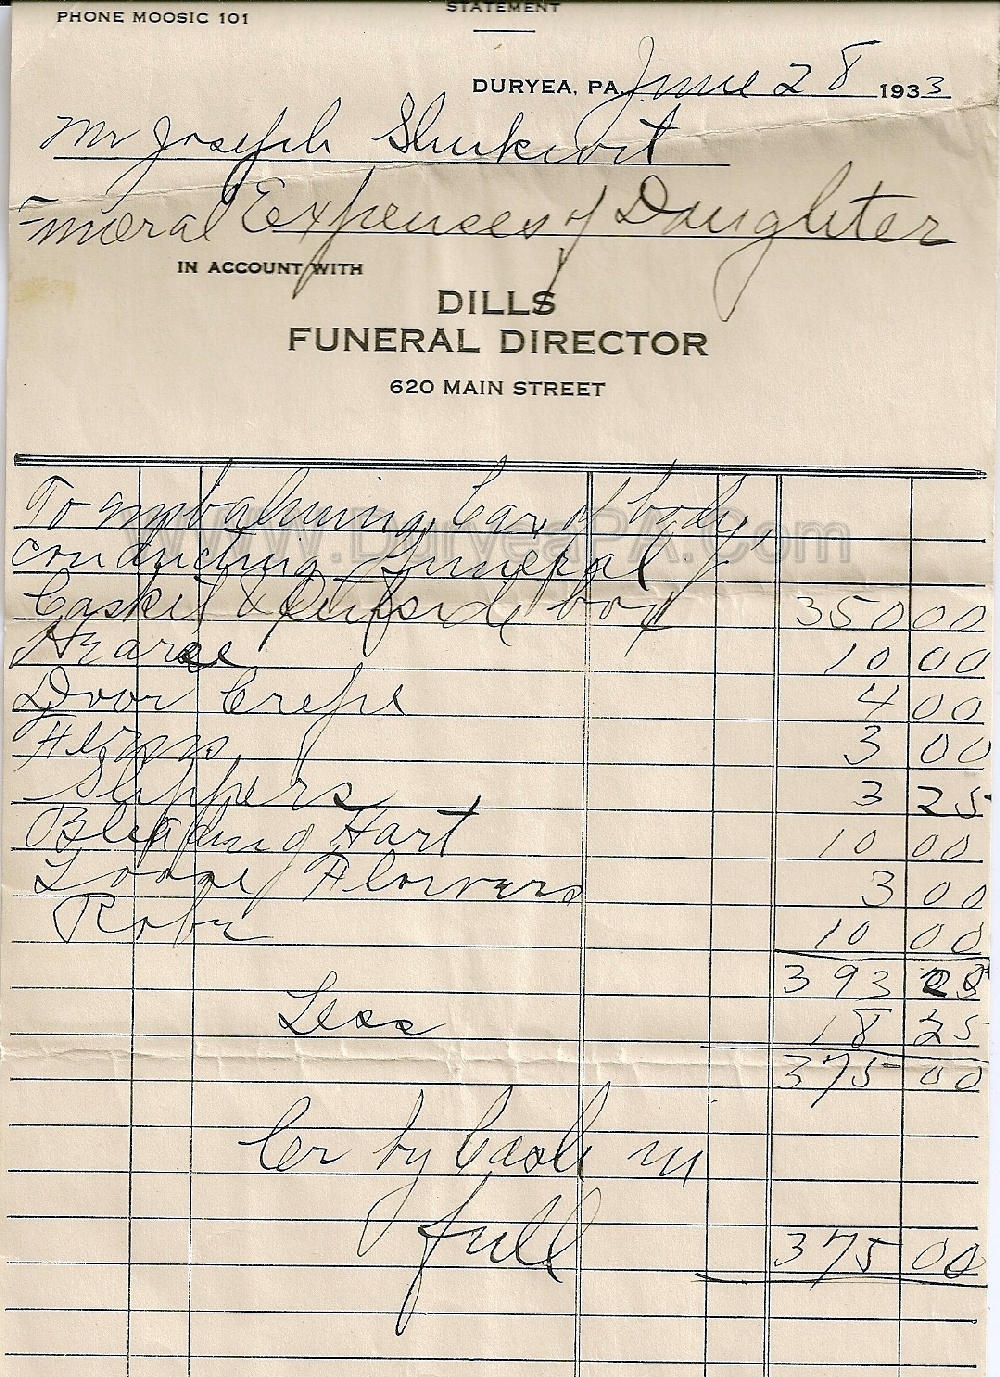 STATEMENT
PHONE MOOSIC 101
DURYEA, PA. June 28 1933
Mr Joseph Shukwit
Funeral Expenses of Daughter
IN ACCOUNT WITH
DILLS
FUNERAL DIRECTOR
620 MAIN STREET
To mbalming, Car of body,
www.DuryeaPA.Com
conducting Funeral
Casket & box 350 00
Hearse 10 00
Door Crepe 4 00
3 00
Slippers 3 25
Bleeding Hart 10 00
Loose Flowers 3 00
Robe 10 00
393 25
Less 18 25
375 00
Cr by Cash in
full 375 00